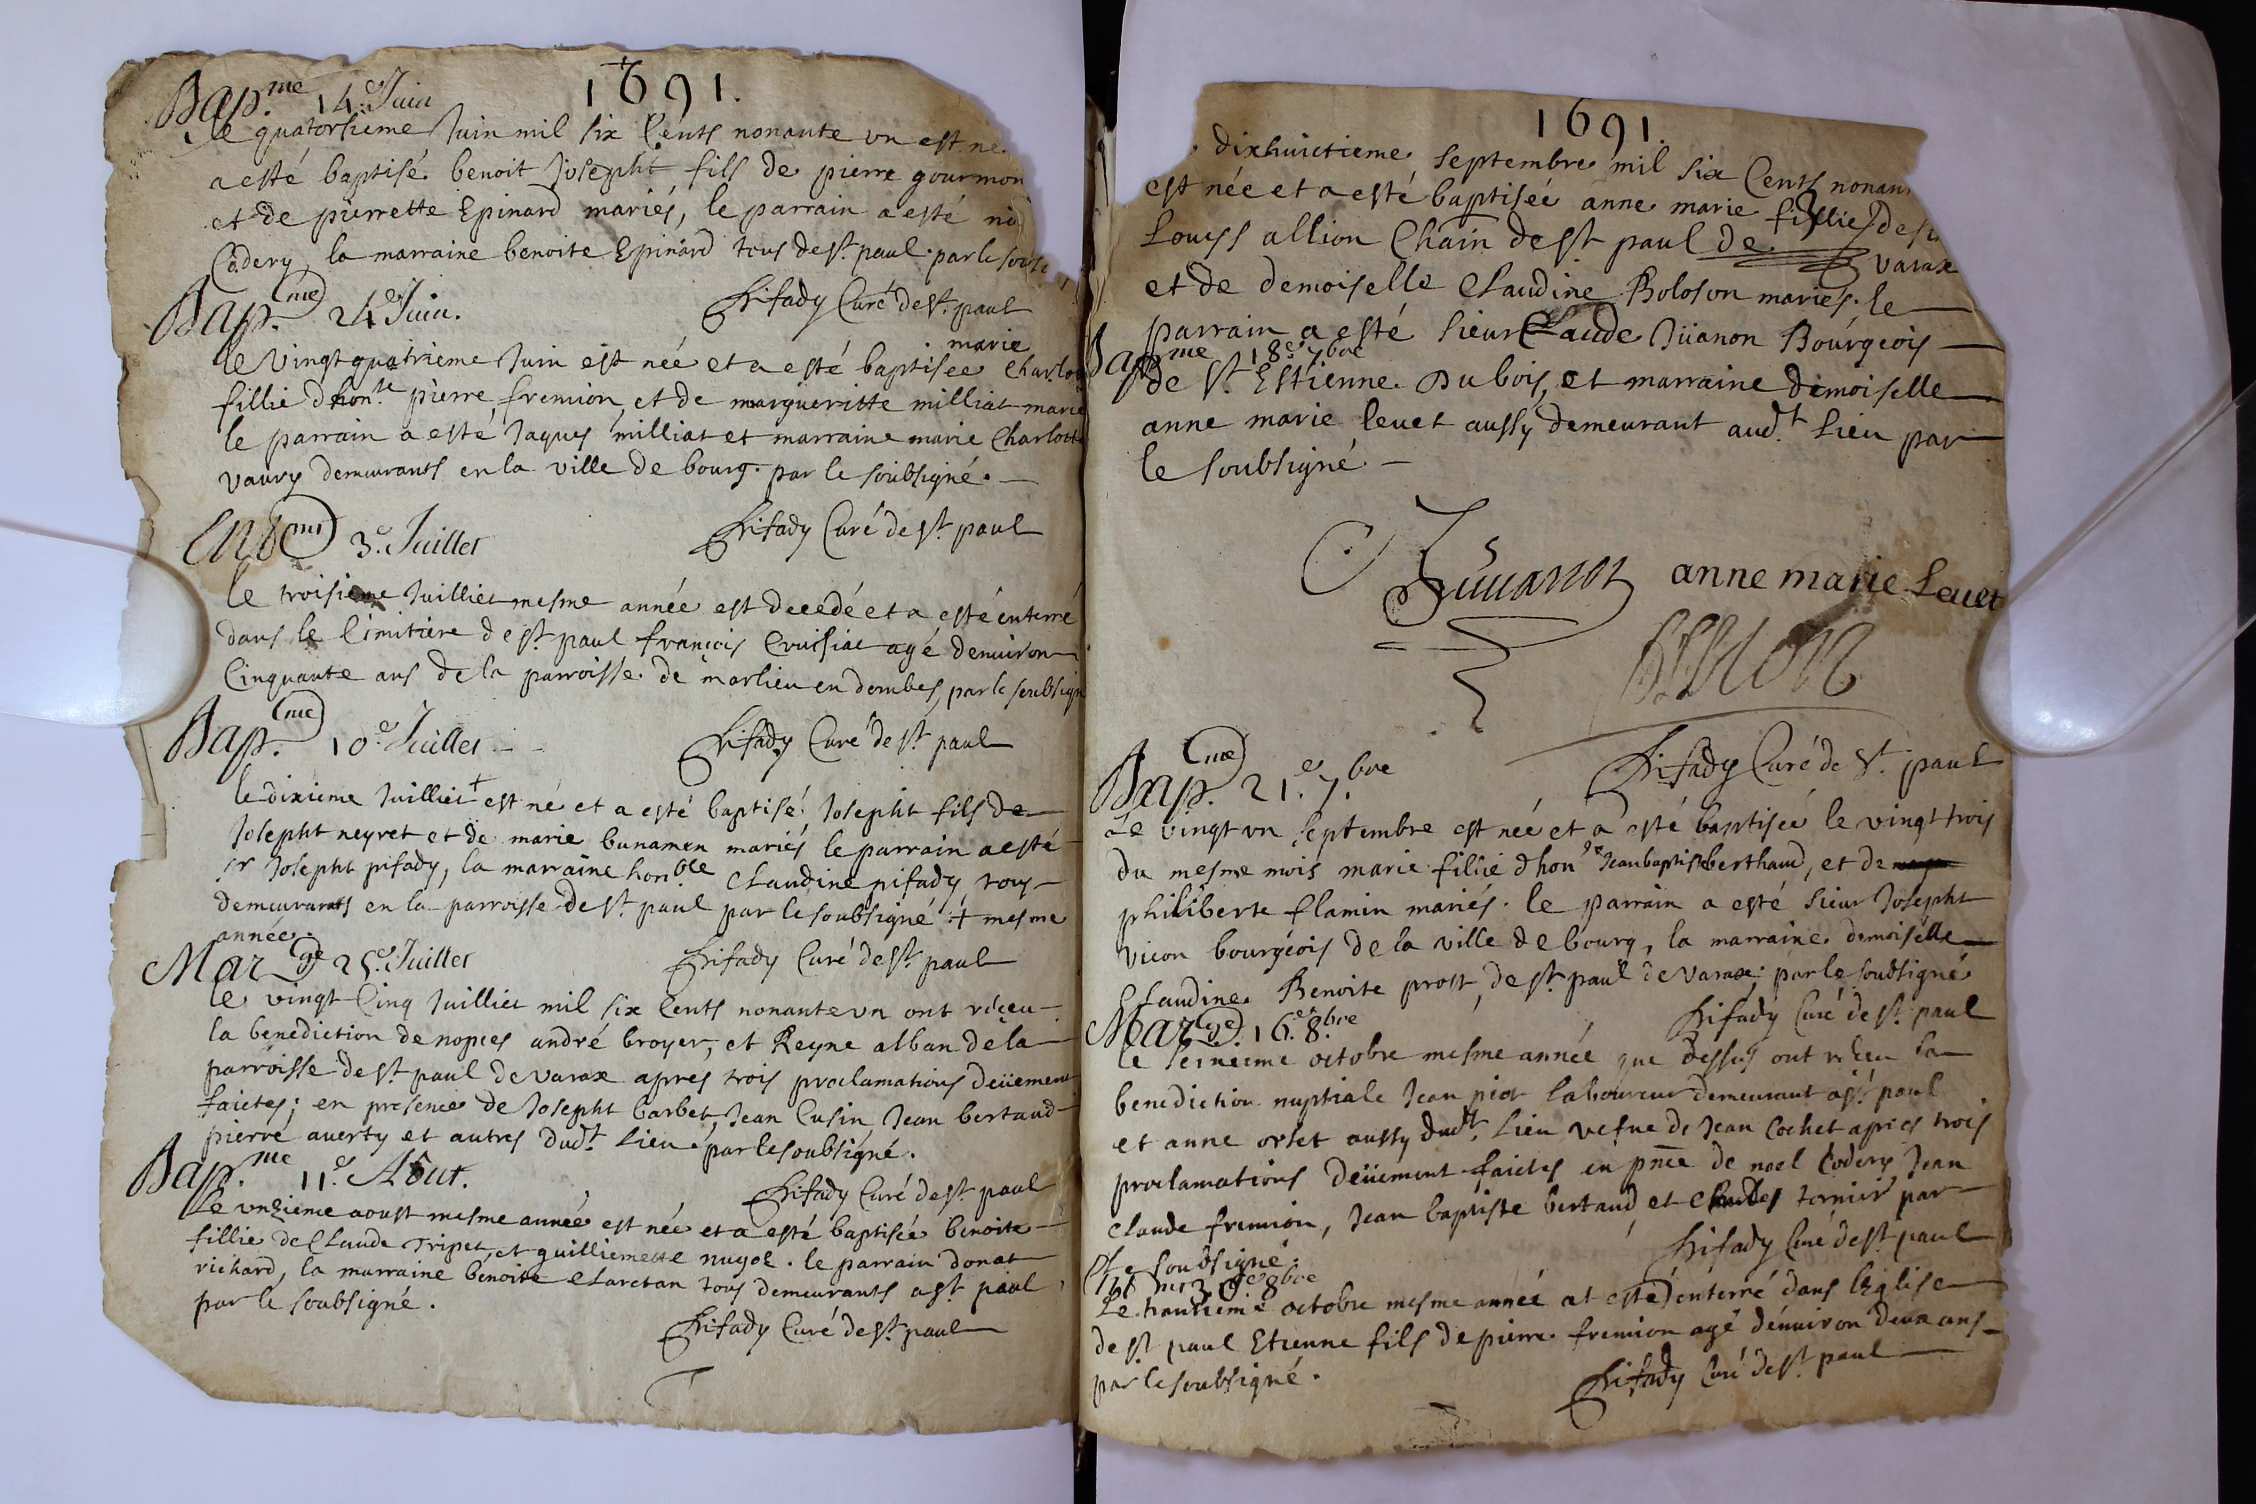 1691.
Bap.me 14.e Juin
Le quatorsieme Juin mil six Cents nonante vn est né
a esté baptisé benoit Josepht fils de pierre gourmon
et de pierrette Epinard mariés, le parrain a esté
Codery, la marraine benoite Epinard tous de St. paul par le
pifady Curé de St. paul
Bap.me 24.e Juin.
marie
le vingt quatrieme Juin est née et a esté baptisée Charlo
fillie dhon.le pierre fremion et de margueritte milliat marié
le parrain a esté Jaques milliat et marraine marie Charlotte
vaury demeurants en la ville de bourg. par le soubsigné.
pifady Curé de St. paul
Ent.mt 3.e Juillet
le troisieme Juilliet mesme année est decedé et a esté enterré
dans le Cimitiere de St. paul françois Cruisiat agé denuiron
Cinquante ans de la parroisse de marlieu en dombes, par le soubsign
pifady Curé de St. paul
Bap.me 10.e Juillet
le dixieme Juilliet + est né et a esté baptisé Josepht fils de
Josepht neyret et de marie bunamen mariés le parrain a esté
sr Josepht pifady, la marraine hon.ble Claudine pifady tous
demeurants en la parroisse de St. paul par le soubsigné + mesme
année.
pifady Curé de St. paul
Mar.ge 25.e Juillet
le vingt Cinq Juilliet mil six Cents nonante vn ont receu
la benediction de nopces andré broyer, et Reyne alban de la
parroisse de St. paul de varax apres trois proclamations deüement
faictes; en presence de Josepht barbet, Jean Cusin, Jean bertaud
pierre auerty et autres dudt. lieu par le soubsigné.
pifady Curé de St. paul
Bap.me 11.e Aout.
Le vnzieme aoust mesme année est née et a esté baptisée benoite
fillie de Claude Tripet, et guilliemette nugoz. le parrain donat
richard, la marraine benoite Claretan tous demeurants a St. paul
par le soubsigné.
pifady Curé de St. paul
1691.
dixhuictieme septembre mil six Cents nonan
est née et a esté baptisée anne marie fillie de si
Louys allion Chain de St. paul de varax
et de demoiselle Claudine Boloson mariés. le
parrain a esté sieur Claude Jüanon Bourgeois
Bap.me 18.e 7.bre
de St. Estienne. Dubois, et marraine demoiselle
anne marie leuet aussy demeurant aud.t lieu par
le soubsigné
anne marie Leuet
pifady Curé de St. paul
Bap.me 21.e 7.bre
Le vingt vn septembre est née et a esté baptisée le vingt trois
du mesme mois marie fillie dhon.le Jean baptiste berthaud, et de
philiberte flamin mariés. le parrain a esté sieur Josepht
vicon bourgeois de la ville de bourg, la marraine demoiselle
Claudine Benoite prost, de St. paul de varax, par le soubsigné
pifady Curé de St. paul
Mar.ge 16.e 8.bre
le seizieme octobre mesme année que dessus ont receu la
benediction nuptiale Jean piot laboureur demeurant a St. paul
et anne orset aussy dudt. lieu vefue de Jean Cochet apres trois
proclamations deüement faictes en pnce de noel Codery Jean
claude fremion, Jean baptiste bertaud et Charles tornier par
le soubsigné.
pifady Curé de St. paul
Ent.mt 30.e 8.bre
Le trantieme octobre mesme année at esté enterré dans lEglise
de St. paul Etienne fils de pierre fremion agé denuiron deux ans
par le soubsigné.
pifady Curé de St. paul